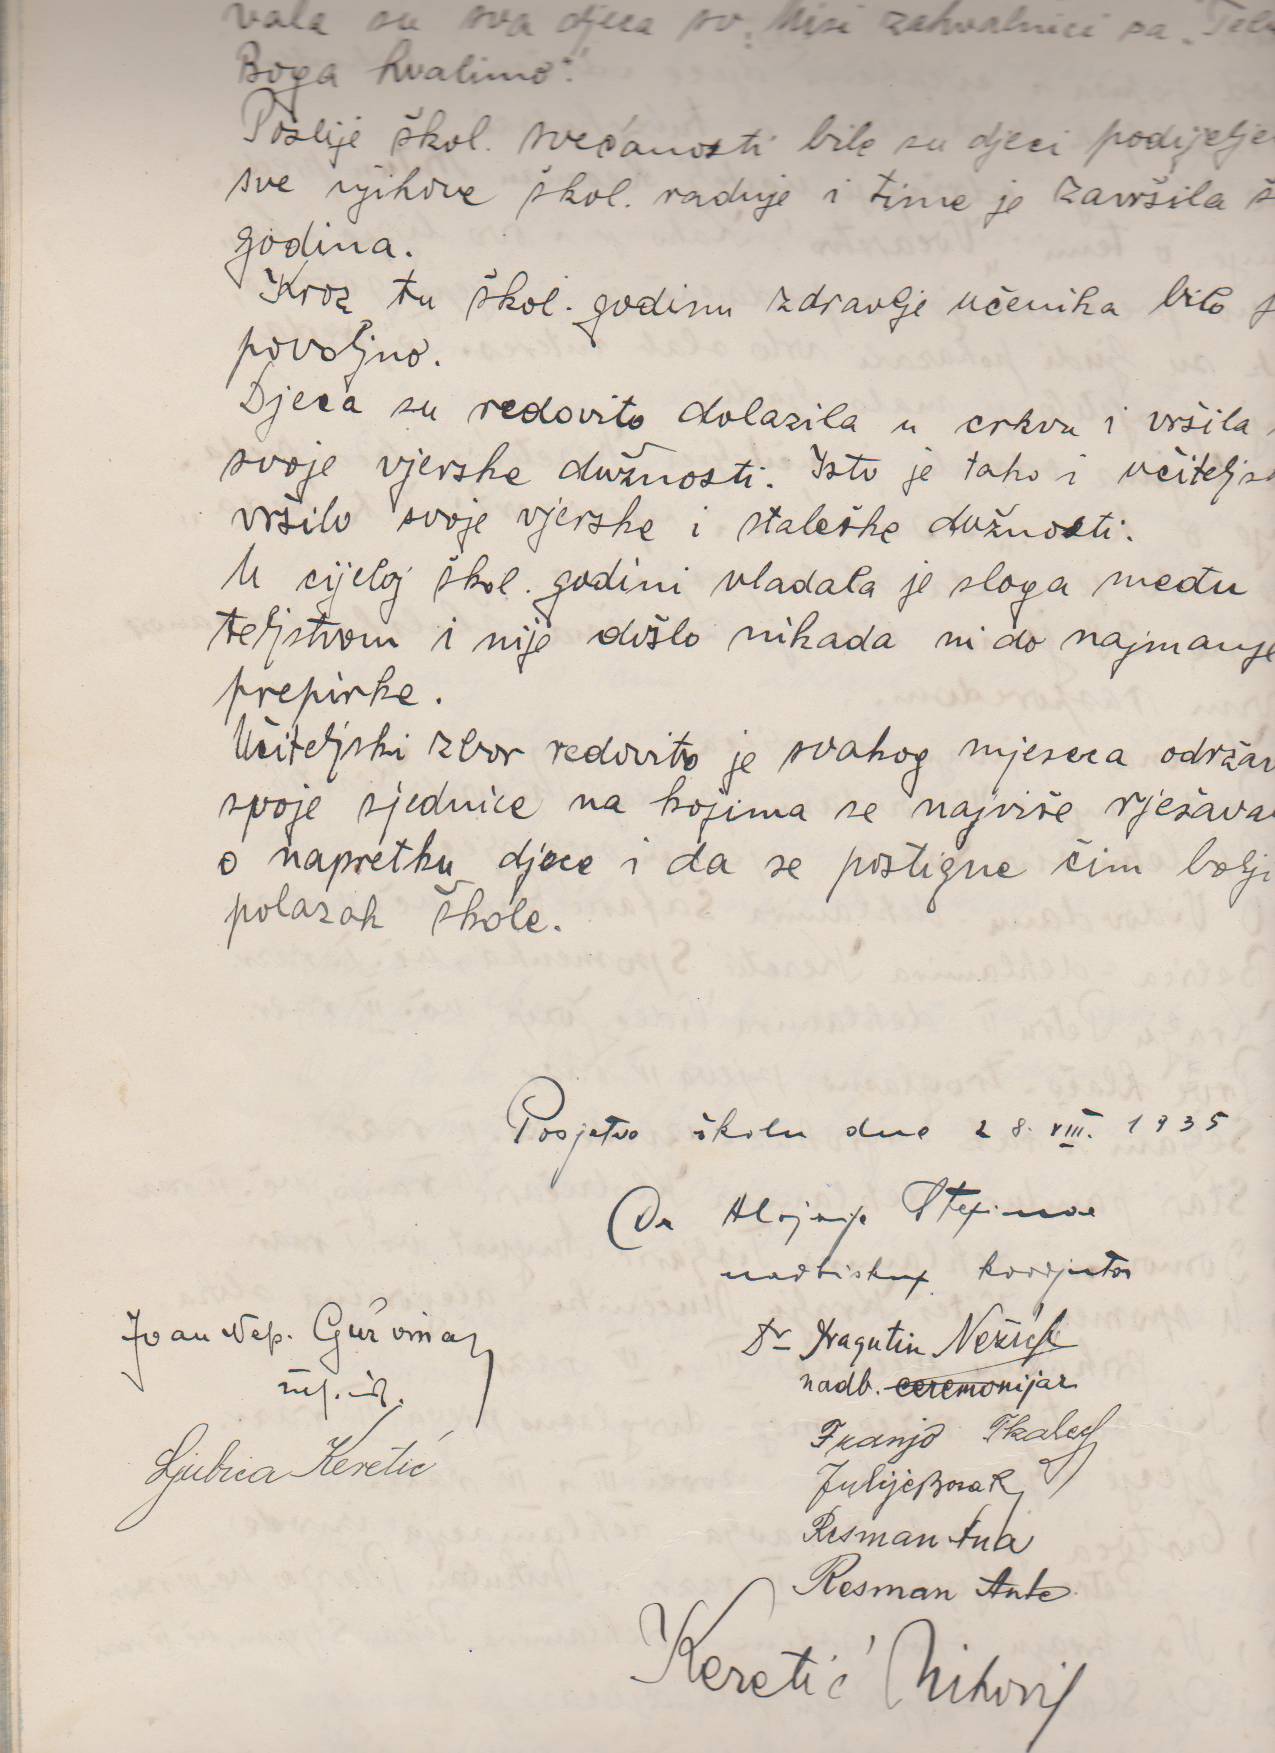 vala su sva djeca sv. Misi zahvalnici sa „Tebe
Boga hvalimo".
Poslije škol. svečanosti bile su djeci podijelje
sve njihove škol. radnje i time je završila š
godina.
Kroz tu škol. godinu zdravlje učenika bilo j
povoljno.
Djeca su redovito dolazila u crkvu i vršila
svoje vjerske dužnosti. Isto je tako i učiteljs
vršilo svoje vjerske i staleške dužnosti.
U cijeloj škol. godini vladala je sloga među
teljstvom i nije došlo nikada ni do najmanje
prepirke.
Učiteljski zbor redovito je svakog mjeseca održav
svoje sjednice na kojima se najviše rješava
o napretku djece i da se postigne čim bolji
polazak škole.
Posjetio školu dne 28. VIII. 1935
Dr Alojzije Stepinac
nadbiskup koadjutor
Dr Dragutin Nežić
nadb. ceremonijar
Franjo Tkalec
Julije Bosak
Resman Ana
Resman Ante
Keretić Mihovil
Ivan Nep.
Ljubica Keretić